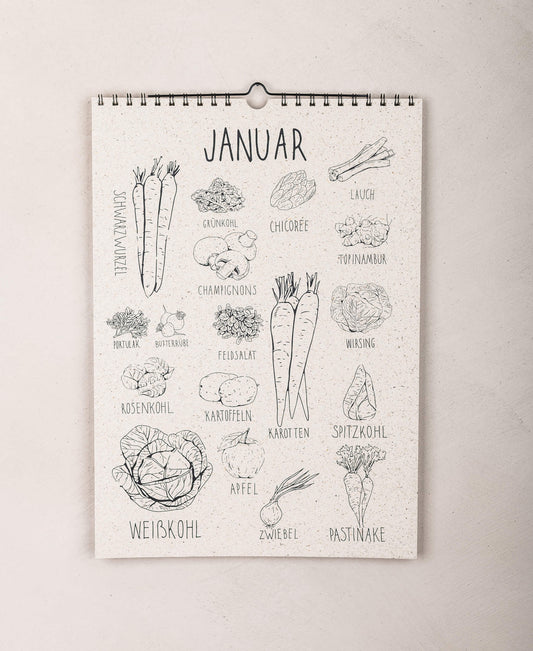 JANUAR
SCHWARZWURZEL
GRÜNKOHL
CHICORÉE
LAUCH
CHAMPIGNONS
TOPINAMBUR
PORTULAK
BUTTERRÜBE
FELDSALAT
WIRSING
ROSENKOHL
KARTOFFELN
KAROTTEN
SPITZKOHL
APFEL
WEIßKOHL
ZWIEBEL
PASTINAKE